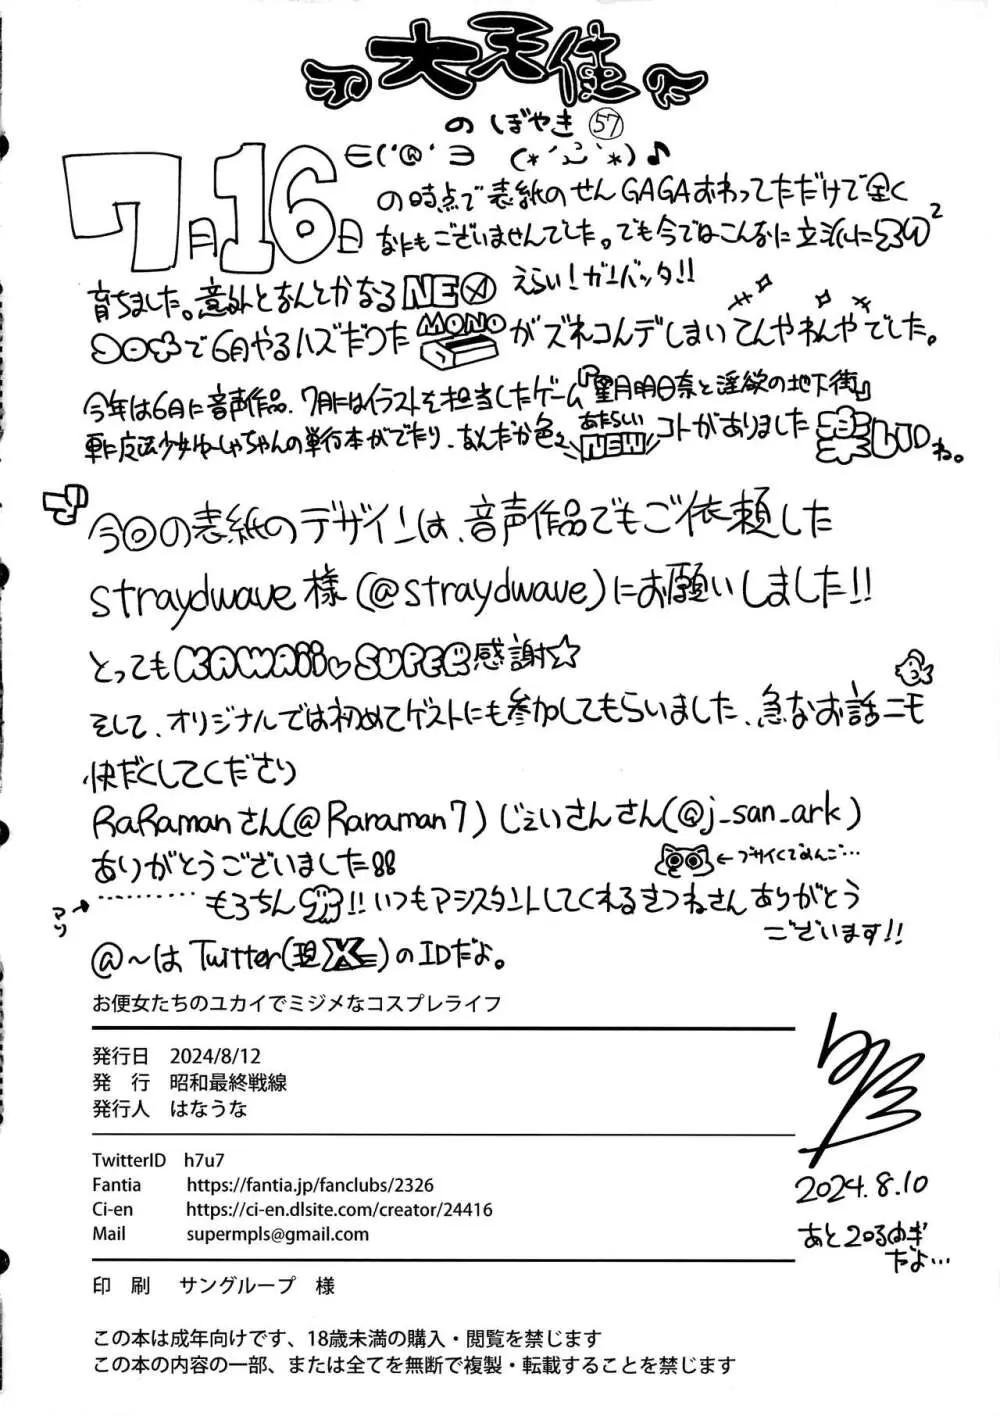 大天使
のぼやき 57
7月16日
の時点で表紙のせんGAGAおわってただけで全く
なにもございませんでした。でも今ではこんなに立派に
育ちました。意外となんとかなるNE えらい!ガーバッタ!!
で6月やるハズだったMONOがズレコンデしまいてんやわんやでした。
今年は6月に音声作品、7月にはイラストを担当したゲーム『星月明日奈と淫欲の地下街』
単行本がでたり、なんだか色々あたらしいNEWコトがありました
ね。
今回の表紙のデザインは、音声作品でもご依頼した
straydwave様(@straydwave)にお願いしました!!
とってもKAWAii♡SUPER感謝☆
そして、オリジナルでは初めてゲストにも参加してもらいました、急なお話ニモ
快だくしてくださり
RaRamanさん(@Raraman7)じぇいさんさん(@j_san_ark)
ありがとうございました!!
←ブサイクでめんご…
マソ→
………もろちん!!いつもアシスタントしてくれるきつねさんありがとう
ございます!!
@~はTwitter(現X)のIDだよ。
お便女たちのユカイでミジメなコスプレライフ
発行日 2024/8/12
発 行 昭和最終戦線
発行人 はなうな
TwitterID h7u7
Fantia https://fantia.jp/fanclubs/2326
Ci-en https://ci-en.dlsite.com/creator/24416
Mail supermpls@gmail.com
印 刷 サングループ 様
2024.8.10
あと
だよ…
この本は成年向けです、18歳未満の購入・閲覧を禁じます
この本の内容の一部、または全てを無断で複製・転載することを禁じます